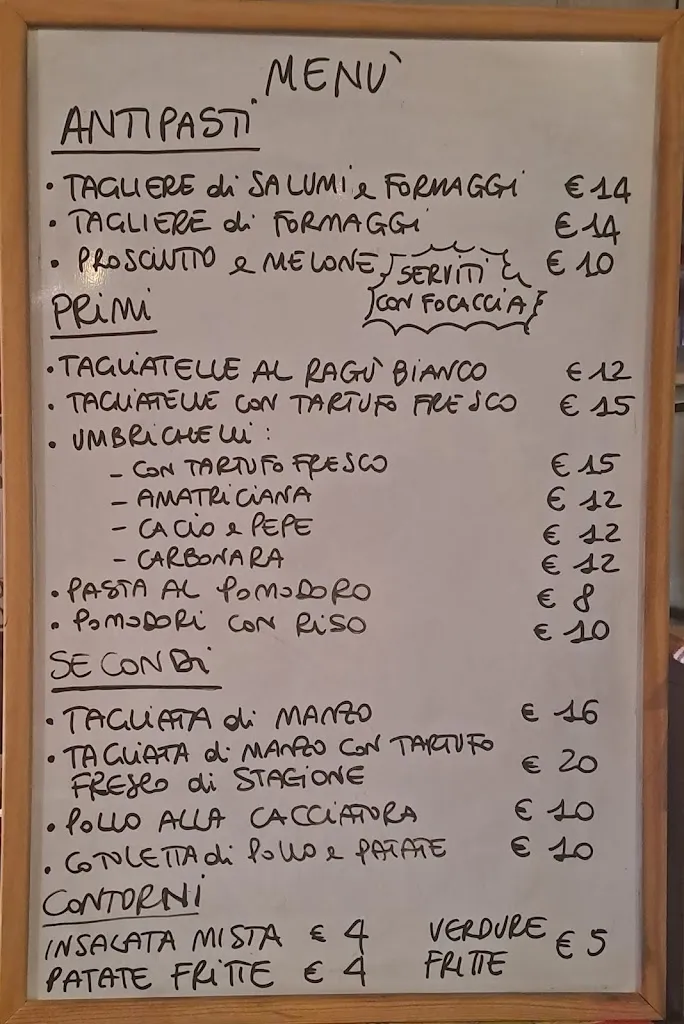 MENÙ
ANTIPASTI
• TAGLIERE di SALUMI e FORMAGGI € 14
• TAGLIERE di FORMAGGI € 14
• PROSCIUTTO e MELONE € 10
SERVITI
CON FOCACCIA
PRIMI
• TAGLIATELLE AL RAGÙ BIANCO € 12
• TAGLIATELLE CON TARTUFO FRESCO € 15
• UMBRICHELLI :
– CON TARTUFO FRESCO € 15
– AMATRICIANA € 12
– CACIO e PEPE € 12
– CARBONARA € 12
• PASTA AL POMODORO € 8
• POMODORI CON RISO € 10
SECONDI
• TAGLIATA di MANZO € 16
• TAGLIATA di MANZO CON TARTUFO
FRESCO di STAGIONE € 20
• POLLO ALLA CACCIATORA € 10
• COTOLETTA di POLLO e PATATE € 10
CONTORNI
INSALATA MISTA € 4
PATATE FRITTE € 4
VERDURE
FRITTE € 5